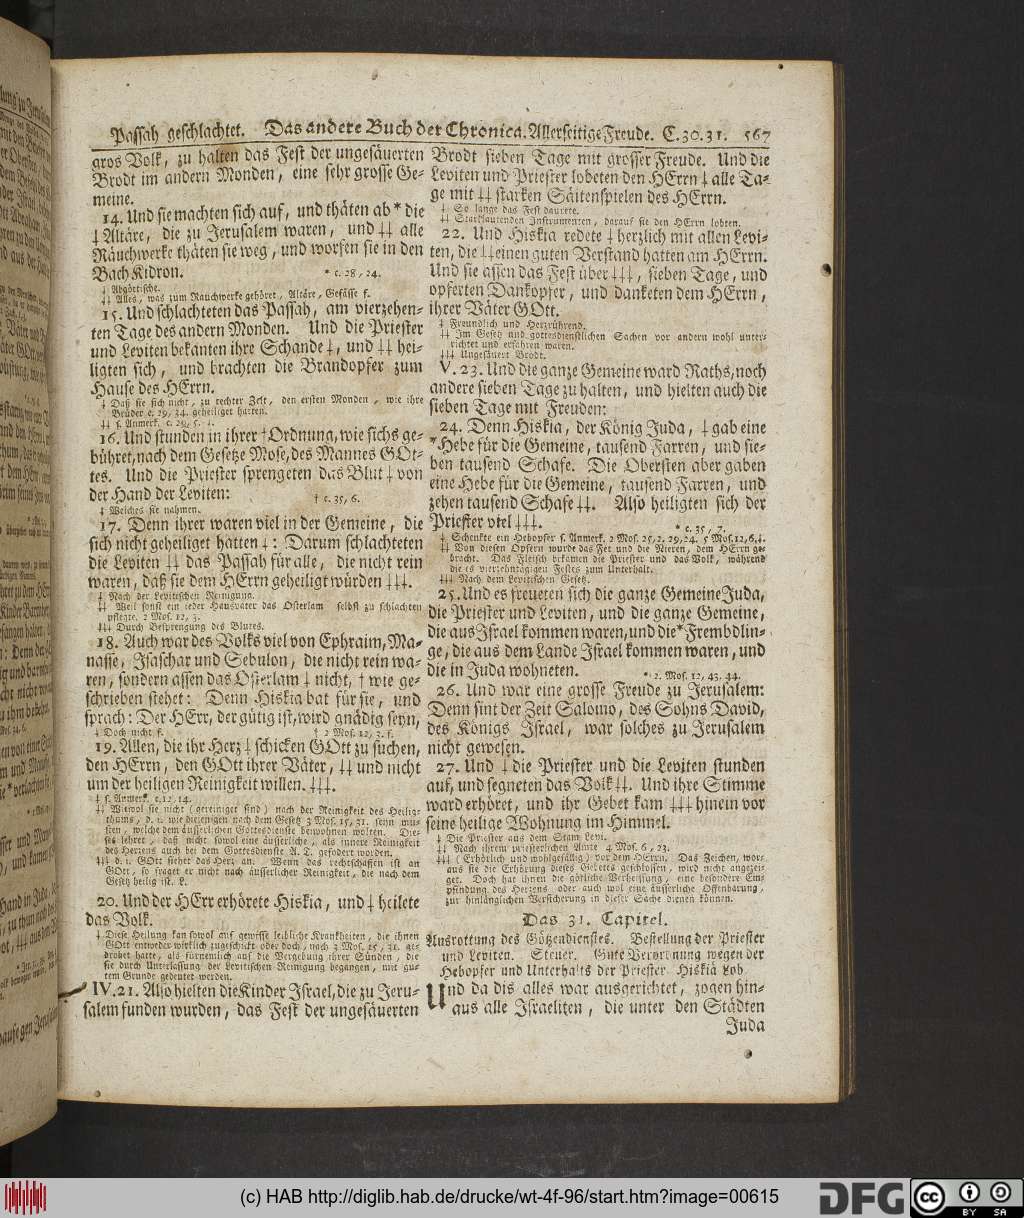 Passah geschlachtet. Das andere Buch der Chronica. Allerseitige Freude. C. 30. 31. 567
gros Volk, zu halten das Fest der ungesäuerten
Brodt im andern Monden, eine sehr grosse Ge-
meine.
14. Und sie machten sich auf, und thäten ab * die
‡ Altäre, die zu Jerusalem waren, und ‡‡ alle
Räuchwerke thäten sie weg, und worfen sie in den
Bach Kidron. * c. 28, 24.
‡ Abgöttische.
‡‡ Alles, was zum Rauchwerke gehöret, Altäre, Gefässe f.
15. Und schlachteten das Passah, am vierzehen-
ten Tage des andern Monden. Und die Priester
und Leviten bekanten ihre Schande ‡, und ‡‡ hei-
ligten sich, und brachten die Brandopfer zum
Hause des HErrn.
‡ Daß sie sich nicht, zu rechter Zeit, den ersten Monden, wie ihre
Brüder c. 29, 34. geheiliget hatten.
‡‡ s. Anmerk. c. 29, 5. ‡.
16. Und stunden in ihrer † Ordnung, wie sichs ge-
bühret, nach dem Gesetze Mose, des Mannes GOt-
tes. Und die Priester sprengeten das Blut ‡ von
der Hand der Leviten: † c. 35, 6.
‡ Welches sie nahmen.
17. Denn ihrer waren viel in der Gemeine, die
sich nicht geheiliget hatten ‡: Darum schlachteten
die Leviten ‡‡ das Passah für alle, die nicht rein
waren, daß sie dem HErrn geheiligt würden ‡‡‡.
‡ Nach der Levitischen Reinigung.
‡‡ Weil sonst ein ieder Hausvater das Osterlam selbst zu schlachten
pflegte. 2 Mos. 12, 3.
‡‡‡ Durch Besprengung des Blutes.
18. Auch war des Volks viel von Ephraim, Ma-
nasse, Isaschar und Sebulon, die nicht rein wa-
ren, sondern assen das Osterlam ‡ nicht, † wie ge-
schrieben stehet: Denn Hiskia bat für sie, und
sprach: Der HErr, der gütig ist, wird gnädig seyn,
‡ Doch nicht f. † 2 Mos. 12, 3. f.
19. Allen, die ihr Herz ‡ schicken GOtt zu suchen,
den HErrn, den GOtt ihrer Väter, ‡‡ und nicht
um der heiligen Reinigkeit willen. ‡‡‡.
‡ s. Anmerk. c. 12, 14.
‡‡ Wiewol sie nicht (gereiniget sind) nach der Reinigkeit des Heilig-
thums, d. i. wie diejenigen nach dem Gesetz 3 Mos. 15, 31. seyn mus-
sten, welche dem äusserlichen Gottesdienste beiwohnen wolten. Die-
ses lehret, daß nicht sowol eine äusserliche, als innere Reinigkeit
des Herzens auch bei dem Gottesdienste A. T. gefodert worden.
‡‡‡ d. i. GOtt siehet das Herz an. Wenn das rechtschaffen ist an
GOtt, so fraget er nicht nach äusserlicher Reinigkeit, die nach dem
Gesetz heilig ist. L.
20. Und der HErr erhörete Hiskia, und ‡ heilete
das Volk.
‡ Diese Heilung kan sowol auf gewisse leibliche Krankheiten, die ihnen
GOtt entweder wirklich zugeschickt oder doch, nach 3 Mos. 15, 31. ge-
drohet hatte, als fürnemlich auf die Vergebung ihrer Sünden, die
sie durch Unterlassung der Levitischen Reinigung begangen, mit gu-
tem Grunde gedeutet werden.
IV. 21. Also hielten die Kinder Israel, die zu Jeru-
salem funden wurden, das Fest der ungesäuerten
Brodt sieben Tage mit grosser Freude. Und die
Leviten und Priester lobeten den HErrn ‡ alle Ta-
ge mit ‡‡ starken Säitenspielen des HErrn.
‡ So lange das Fest daurete.
‡‡ Starklautenden Instrumenten, darauf sie den HErrn lobten.
22. Und Hiskia redete ‡ herzlich mit allen Levi-
ten, die ‡‡ einen guten Verstand hatten am HErrn.
Und sie assen das Fest über ‡‡‡, sieben Tage, und
opferten Dankopfer, und danketen dem HErrn,
ihrer Väter GOtt.
‡ Freundlich und Herzrührend.
‡‡ Im Gesetz und gottesdienstlichen Sachen vor andern wohl unter-
richtet und erfahren waren.
‡‡‡ Ungesäuert Brodt.
V. 23. Und die ganze Gemeine ward Raths, noch
andere sieben Tage zu halten, und hielten auch die
sieben Tage mit Freuden:
24. Denn Hiskia, der König Juda, ‡ gab eine
* Hebe für die Gemeine, tausend Farren, und sie-
ben tausend Schafe. Die Obersten aber gaben
eine Hebe für die Gemeine, tausend Farren, und
zehen tausend Schafe ‡‡. Also heiligten sich der
Priester viel ‡‡‡. * c. 35, 7.
‡ Schenkte ein Hebopfer s. Anmerk. 2 Mos. 25, 2. 29, 24. 5 Mos. 12, 6. ‡.
‡‡ Von diesen Opfern wurde das Fet und die Nieren, dem HErrn ge-
bracht. Das Fleisch bekamen die Priester und das Volk, während
die es vierzehntägigen Festes zum Unterhalt.
‡‡‡ Nach dem Levitischen Gesetz.
25. Und es freueten sich die ganze Gemeine Juda,
die Priester und Leviten, und die ganze Gemeine,
die aus Israel kommen waren, und die * Frembdlin-
ge, die aus dem Lande Israel kommen waren, und
die in Juda wohneten. * 2. Mos. 12, 43. 44.
26. Und war eine grosse Freude zu Jerusalem:
Denn sint der Zeit Salomo, des Sohns David,
des Königs Israel, war solches zu Jerusalem
nicht gewesen.
27. Und ‡ die Priester und die Leviten stunden
auf, und segneten das Volk ‡‡. Und ihre Stimme
ward erhöret, und ihr Gebet kam ‡‡‡ hinein vor
seine heilige Wohnung im Himmel.
‡ Die Priester aus dem Stam Levi.
‡‡ Nach ihrem priesterlichen Amte 4 Mos. 6, 23.
‡‡‡ (Erhörlich und wohlgefällig) vor dem HErrn. Das Zeichen, wor-
aus sie die Erhörung dieses Gebetes geschlossen, wird nicht angezei-
get. Doch hat ihnen die götliche Verheissung, eine besondere Em-
pfindung des Herzens oder auch wol eine äusserliche Offenbarung,
zur hinlänglichen Versicherung in dieser Sache dienen können.
Das 31. Capitel.
Ausrottung des Götzendienstes. Bestellung der Priester
und Leviten. Steuer. Gute Verordnung wegen der
Hebopfer und Unterhalts der Priester Hiskiä Lob.
Und da dis alles war ausgerichtet, zogen hin-
aus alle Israeliten, die unter den Städten
Juda
(c) HAB http://diglib.hab.de/drucke/wt-4f-96/start.htm?image=00615
DFG
cc BY SA